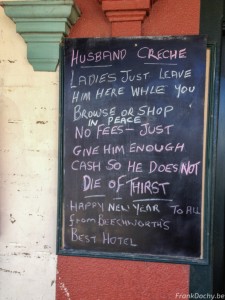 HUSBAND CRECHE
LADIES JUST LEAVE
HIM HERE WHILE YOU
BROWSE OR SHOP
IN PEACE
NO FEES - JUST
GIVE HIM ENOUGH
CASH SO HE DOES NOT
DIE OF THIRST
HAPPY NEW YEAR TO ALL
FROM BEECHWORTH'S
BEST HOTEL
FrankDochy.be